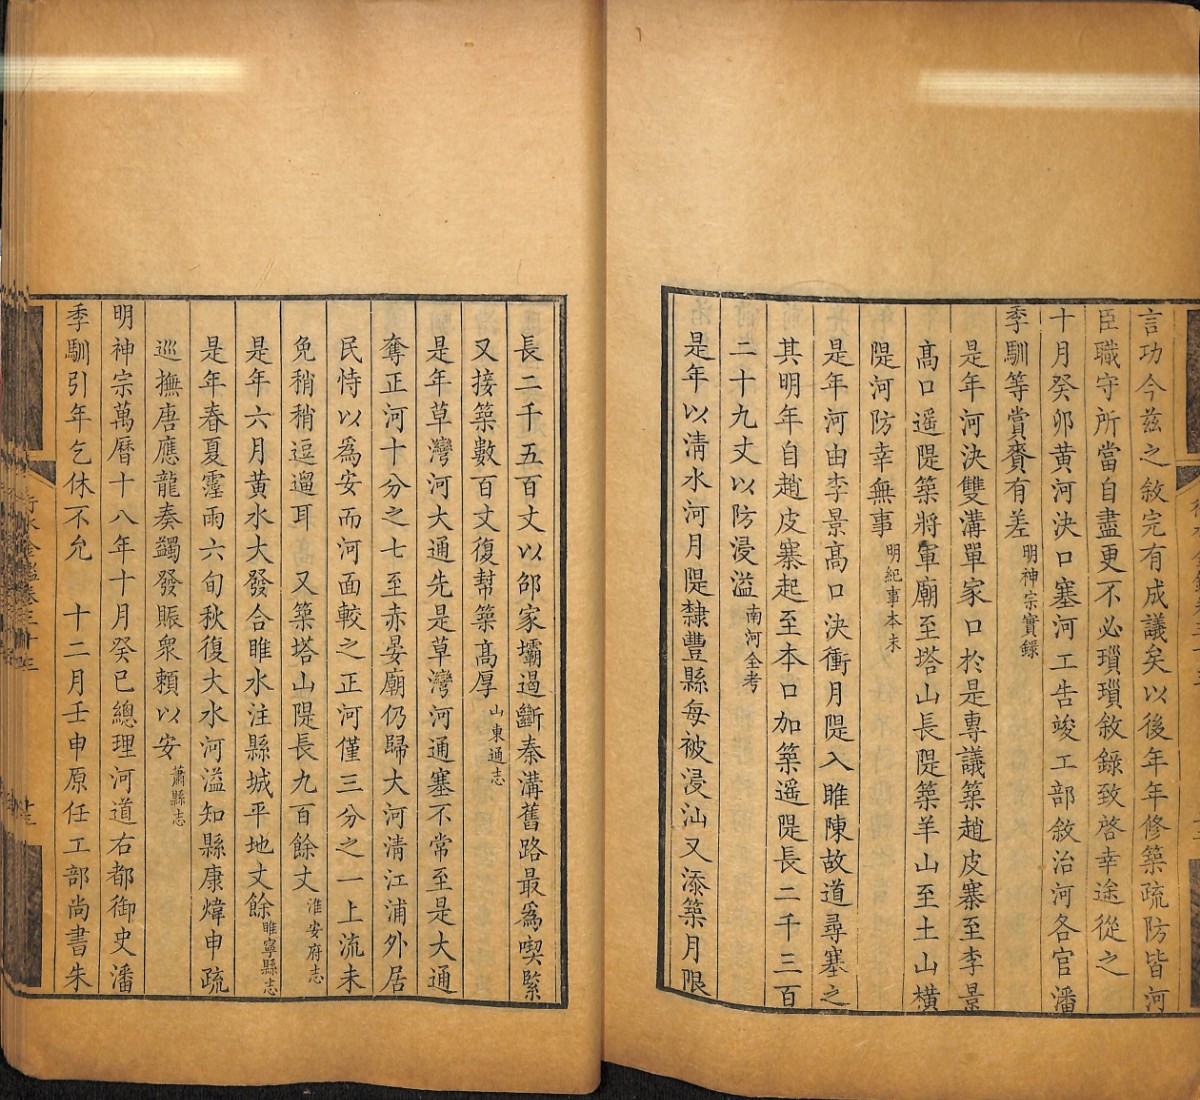 言功今茲之敘完有成議矣以後年年修築疏防皆河
臣職守所當自盡更不必瑣瑣敘錄致啓幸途從之
十月癸卯黄河決口塞河工告竣工部敘治河各官潘
季馴等賞賚有差明神宗實錄
是年河決雙溝單家口於是專議築趙皮寨至李景
髙口遥隄築將軍廟至塔山長隄築羊山至土山横
隄河防幸無事明紀事本末
是年河由李景髙口決衝月隄入睢陳故道尋塞之
其明年自趙皮寨起至本口加築遥隄長二千三百
二十九丈以防浸溢南河全考
是年以清水河月隄隸豐縣每被浸汕又添築月隄
長二千五百丈以邵家壩遏斷秦溝舊路最爲喫緊
又接築數百丈復幇築髙厚山東通志
是年草灣河大通先是草灣河通塞不常至是大通
奪正河十分之七至赤晏廟仍歸大河清江浦外居
民恃以爲安而河面較之正河僅三分之一上流未
免稍稍逗遛耳　又築塔山隄長九百餘丈淮安府志
是年六月黄水大發合睢水注縣城平地丈餘睢寧縣志
是年春夏霪雨六旬秋復大水河溢知縣康煒申疏
巡撫唐應龍奏蠲發賑衆頼以安蕭縣志
明神宗萬曆十八年十月癸巳總理河道右都御史潘
季馴引年乞休不允　十二月壬申原任工部尚書朱
行水金鑑卷三十三